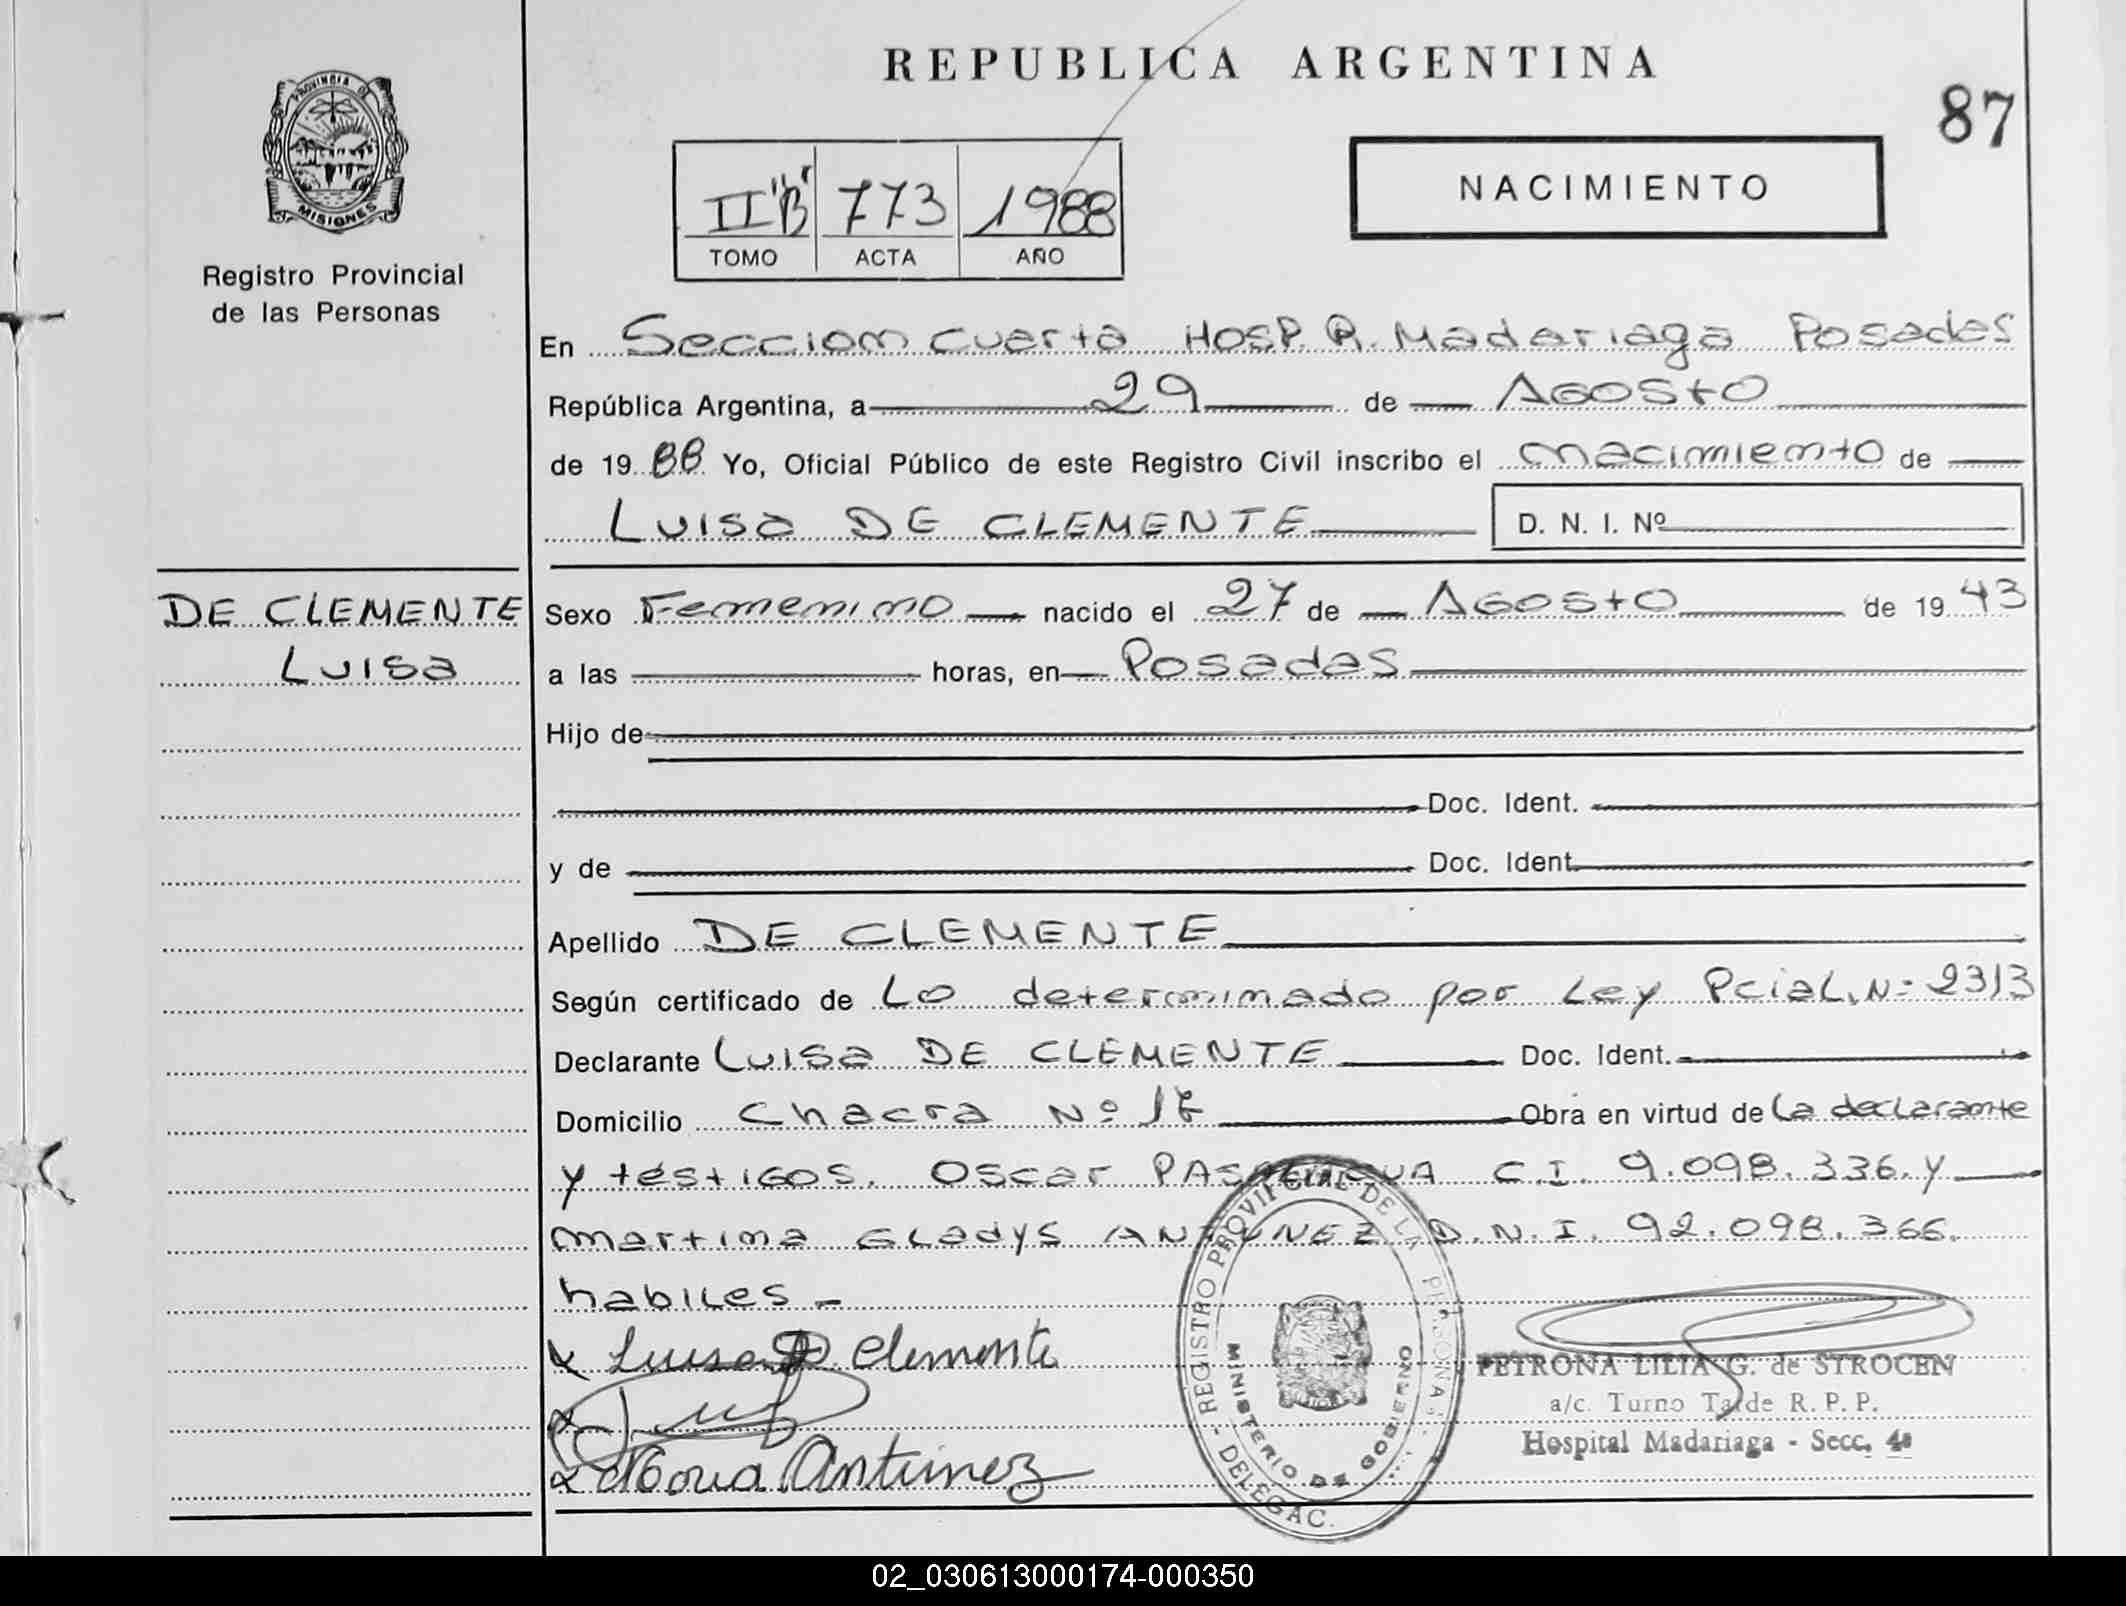 REPUBLICA ARGENTINA
87
PROVINCIA DE
MISIONES
Registro Provincial
de las Personas
II "B" 773 1988
TOMO ACTA AÑO
NACIMIENTO
En Seccion cuarta HOSP. R. Madariaga Posadas
República Argentina, a 29 de AGOSTO
de 1988 Yo, Oficial Público de este Registro Civil inscribo el nacimiento de
LUISA DE CLEMENTE D. N. I. Nº
DE CLEMENTE
LUISA
Sexo Femenino nacido el 27 de AGOSTO de 1943
a las horas, en Posadas
Hijo de
Doc. Ident.
y de Doc. Ident.
Apellido DE CLEMENTE
Según certificado de Lo determinado por Ley Pcial. Nº 2313
Declarante LUISA DE CLEMENTE Doc. Ident.
Domicilio Chacra Nº 17 Obra en virtud de la declarante
y testigos. Oscar C.I. 9.098.336. y
martina GLadys ANTUNEZ D.N.I. 92.098.366.
habiles -
Luisa D Clemente
Antunez
REGISTRO PROVINCIAL DE LA PERSONAS - DELEGAC.
MINISTERIO DE GOBIERNO
PETRONA LILIA G. de STROCEN
a/c. Turno Tarde R. P. P.
Hospital Madariaga - Secc. 4ª
02_030613000174-000350